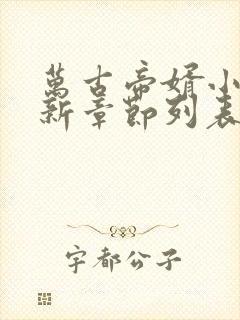 萬古帝婿小
新章節列表
宇都公子